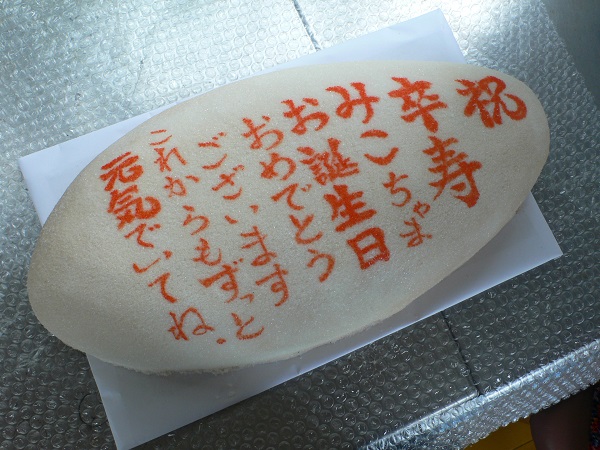 祝
卒寿
みこちゃま
お誕生日
おめでとう
ございます
これからもずっと
元気でいてね。